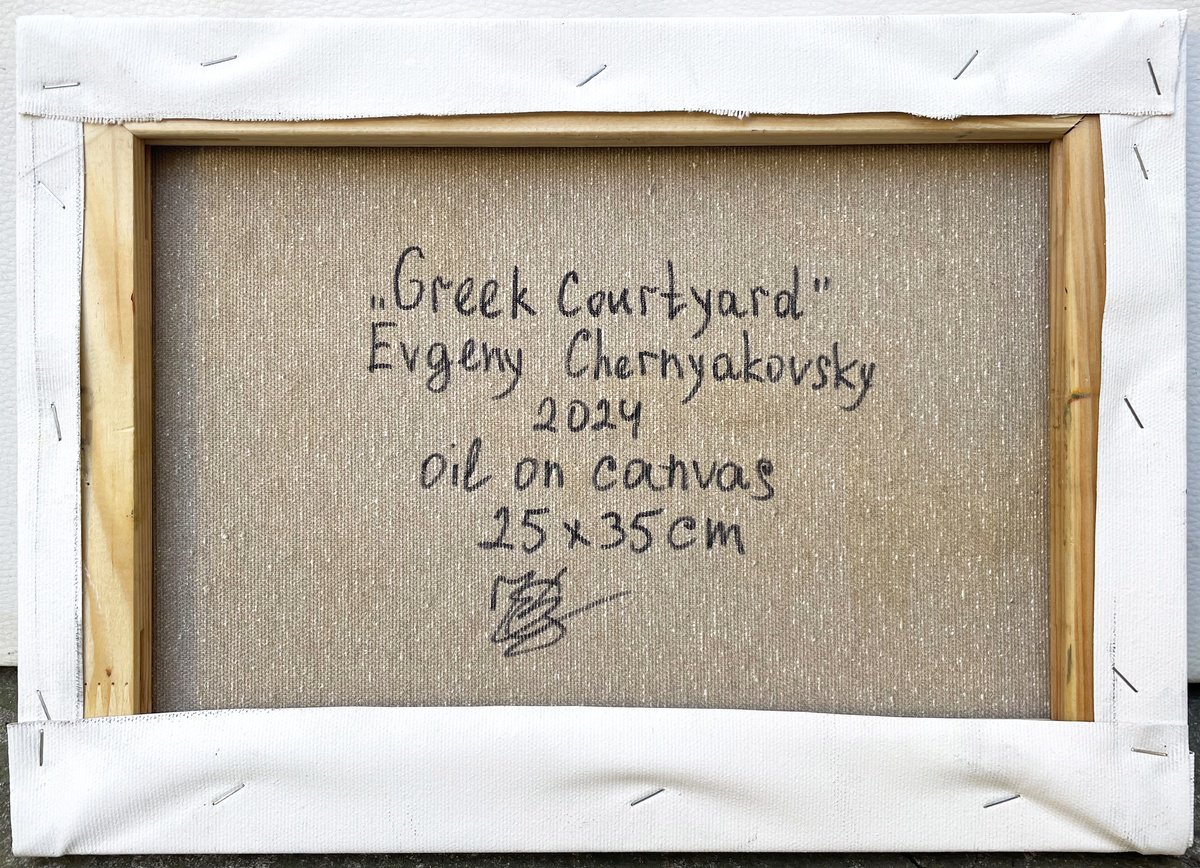 „Greek Courtyard"
Evgeny Chernyakovsky
2024
oil on canvas
25 x 35 cm